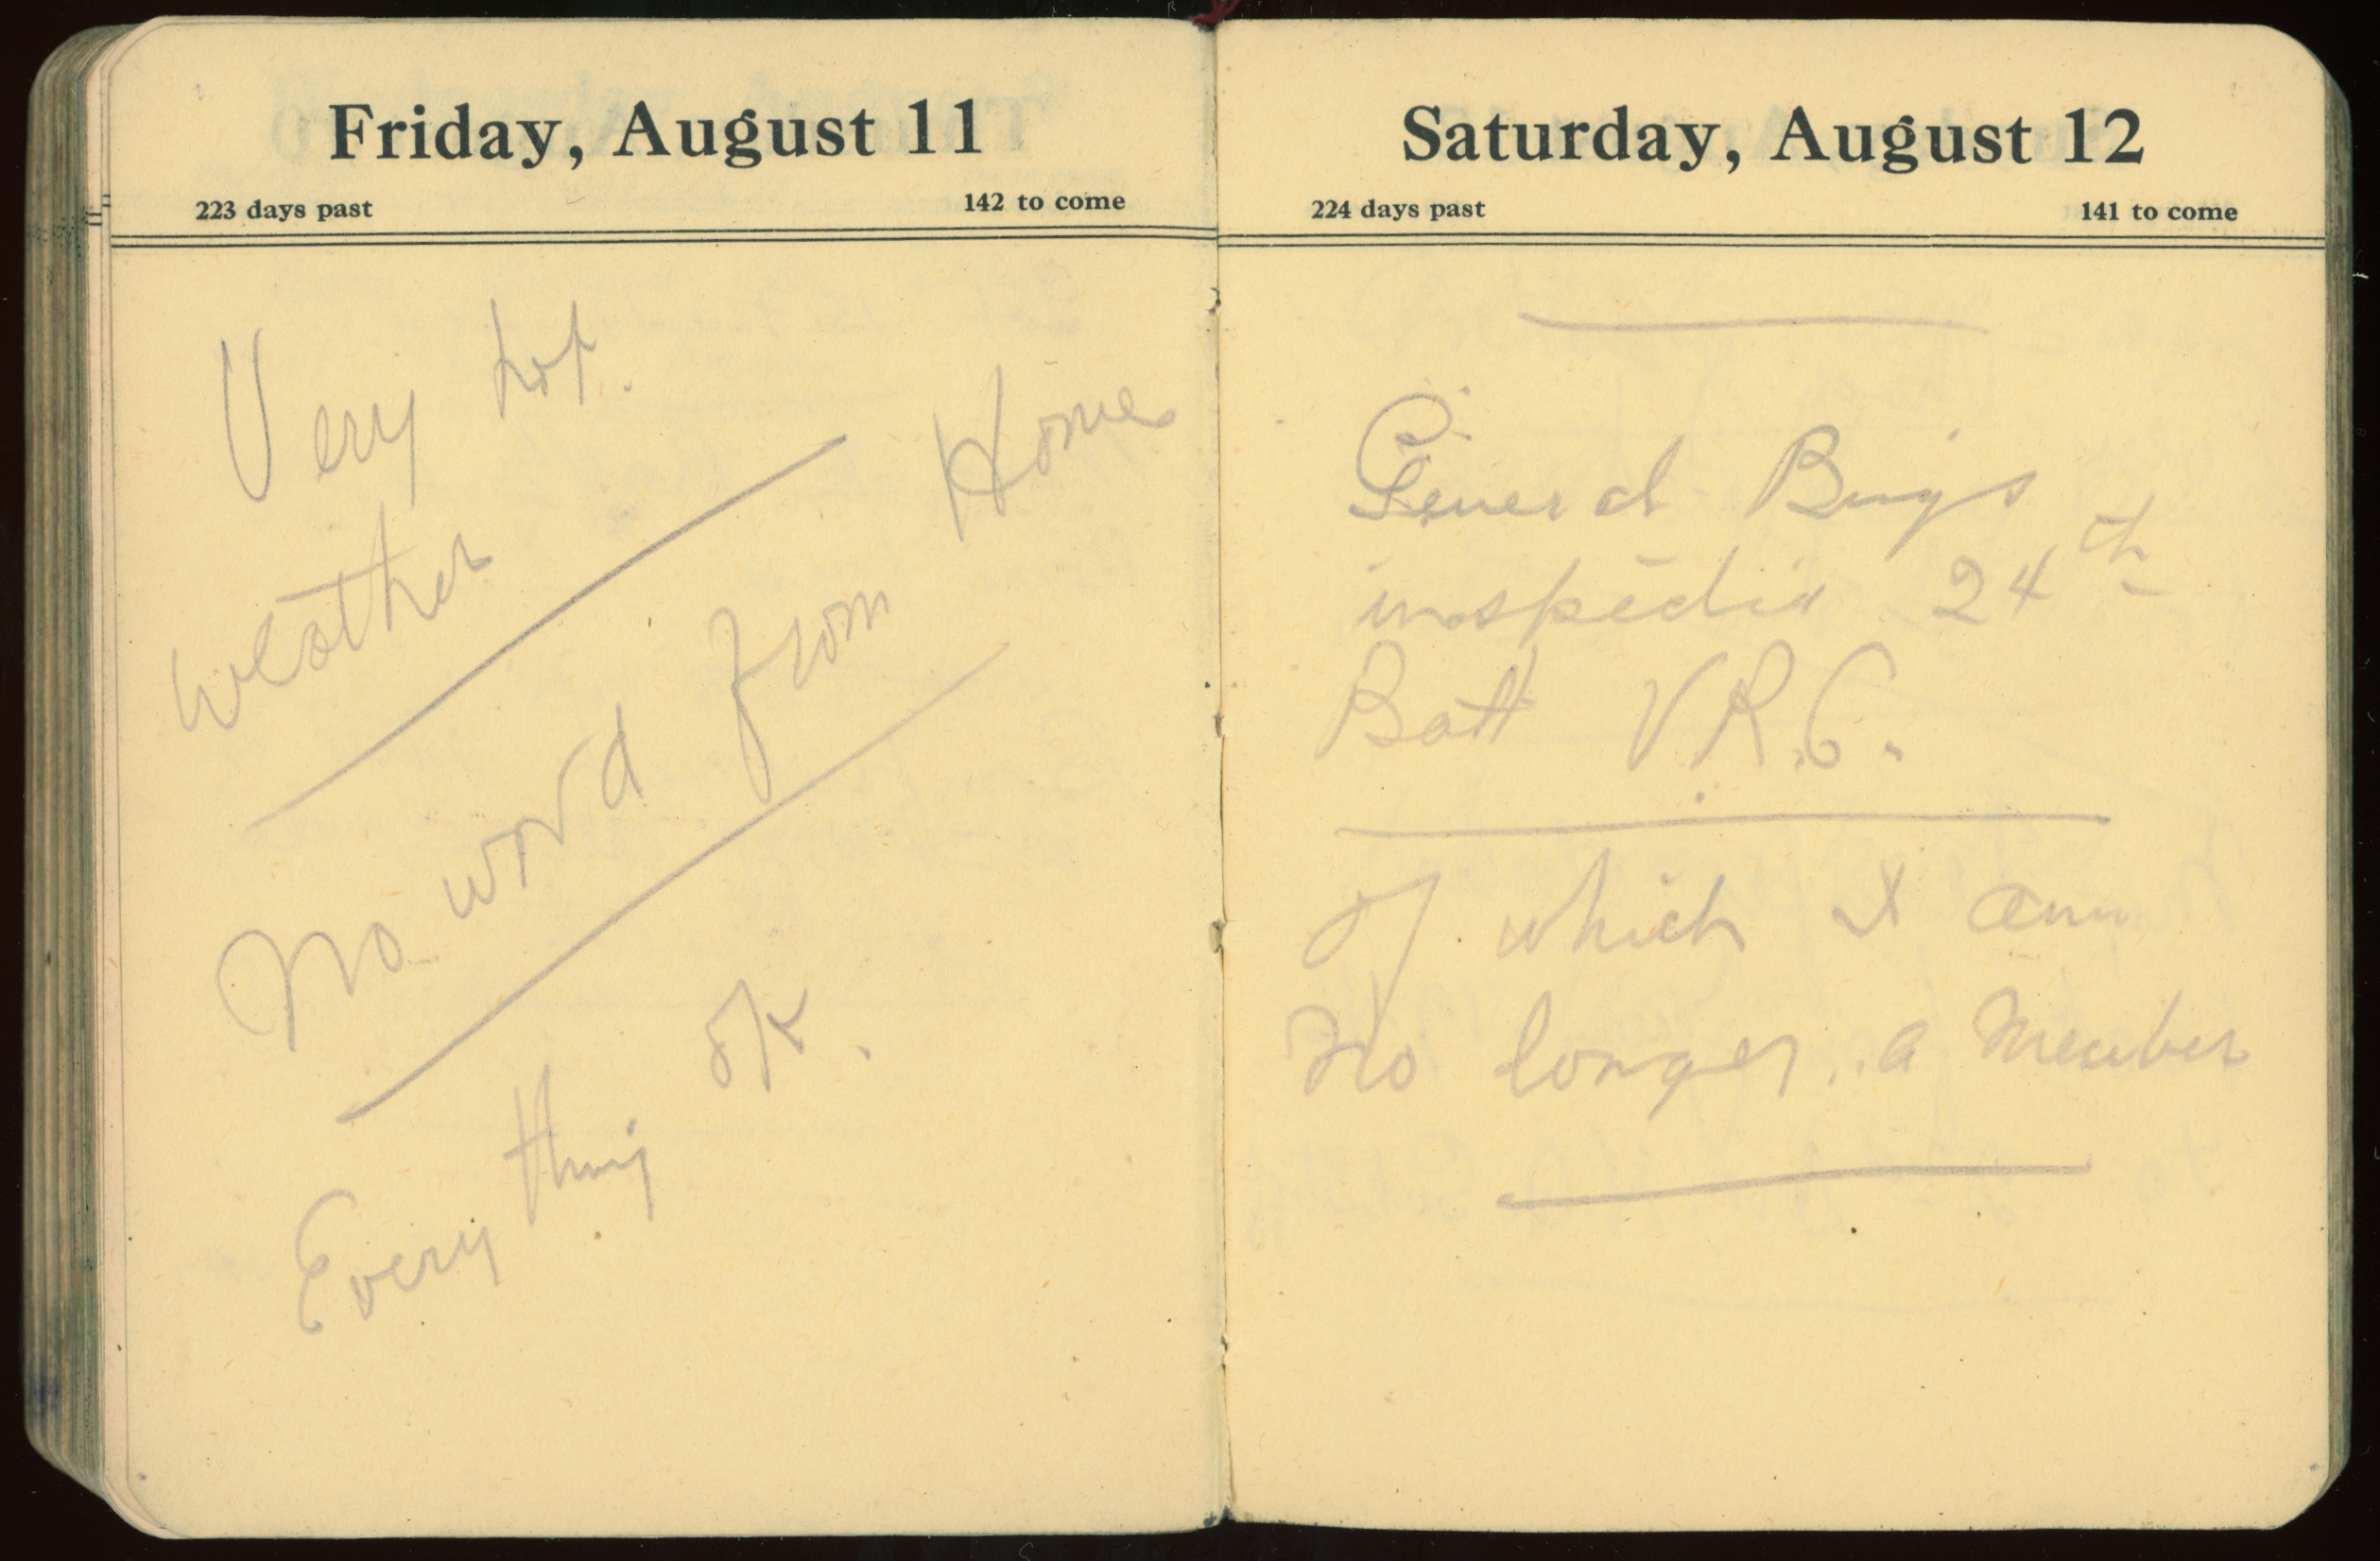 Friday, August 11
223 days past 142 to come
Very hot.
weather
No word from Home
Every thing OK.
Saturday, August 12
224 days past 141 to come
General Bings
inspectin 24th
Batt V.R.C.
of which I am
No longer a Member